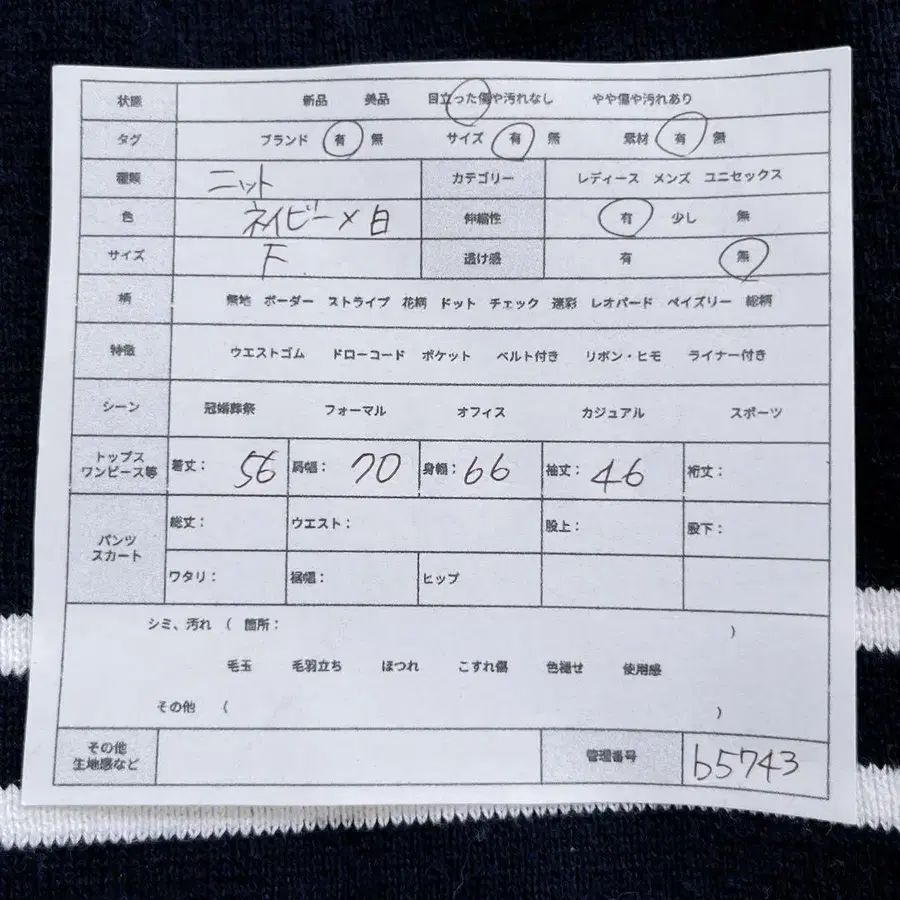 状態 新品 美品 目立った傷や汚れなし やや傷や汚れあり
タグ ブランド 有 無 サイズ 有 無 素材 有 無
種類 ニット カテゴリー レディース メンズ ユニセックス
色 ネイビー×白 伸縮性 有 少し 無
サイズ F 透け感 有 無
柄 無地 ボーダー ストライプ 花柄 ドット チェック 迷彩 レオパード ペイズリー 総柄
特徴 ウエストゴム ドローコード ポケット ベルト付き リボン・ヒモ ライナー付き
シーン 冠婚葬祭 フォーマル オフィス カジュアル スポーツ
トップス
ワンピース等 着丈: 56 肩幅: 70 身幅: 66 袖丈: 46 裄丈:
パンツ
スカート 総丈: ウエスト: 股上: 股下:
ワタリ: 裾幅: ヒップ
シミ、汚れ ( 箇所: )
毛玉 毛羽立ち ほつれ こすれ傷 色褪せ 使用感
その他 ( )
その他
生地感など 管理番号 b5743